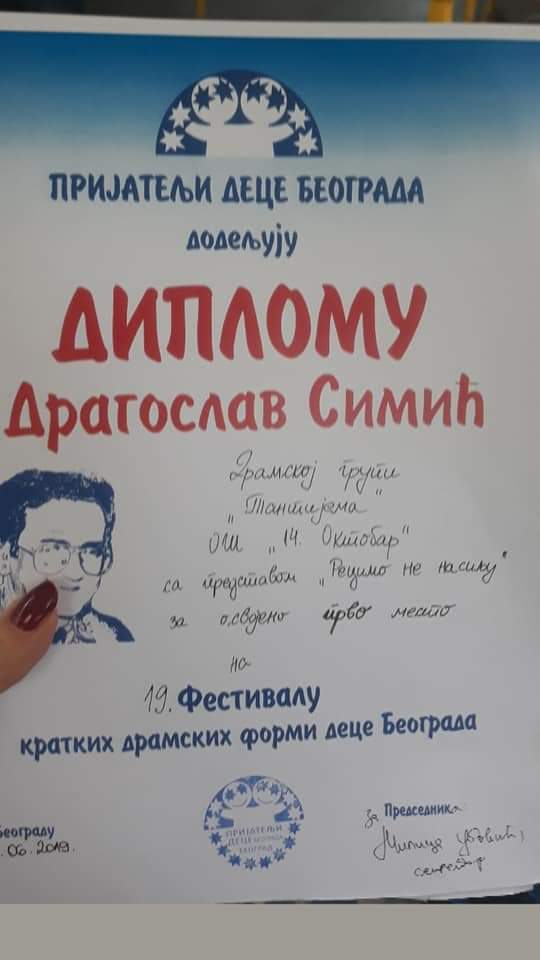 ПРИЈАТЕЉИ ДЕЦЕ БЕОГРАДА
додељују
ДИПЛОМУ
Драгослав Симић
Драмској групи
„Пантијема"
ОШ „14. Октобар"
са представом „Рецимо не насиљу"
за освојено прво место
на
19. Фестивалу
кратких драмских форми деце Београда
ПРИЈАТЕЉИ
ДЕЦЕ БЕОГРАДА
БЕОГРАД
за Председника
Милица
секретар
Београду
.06.2019.